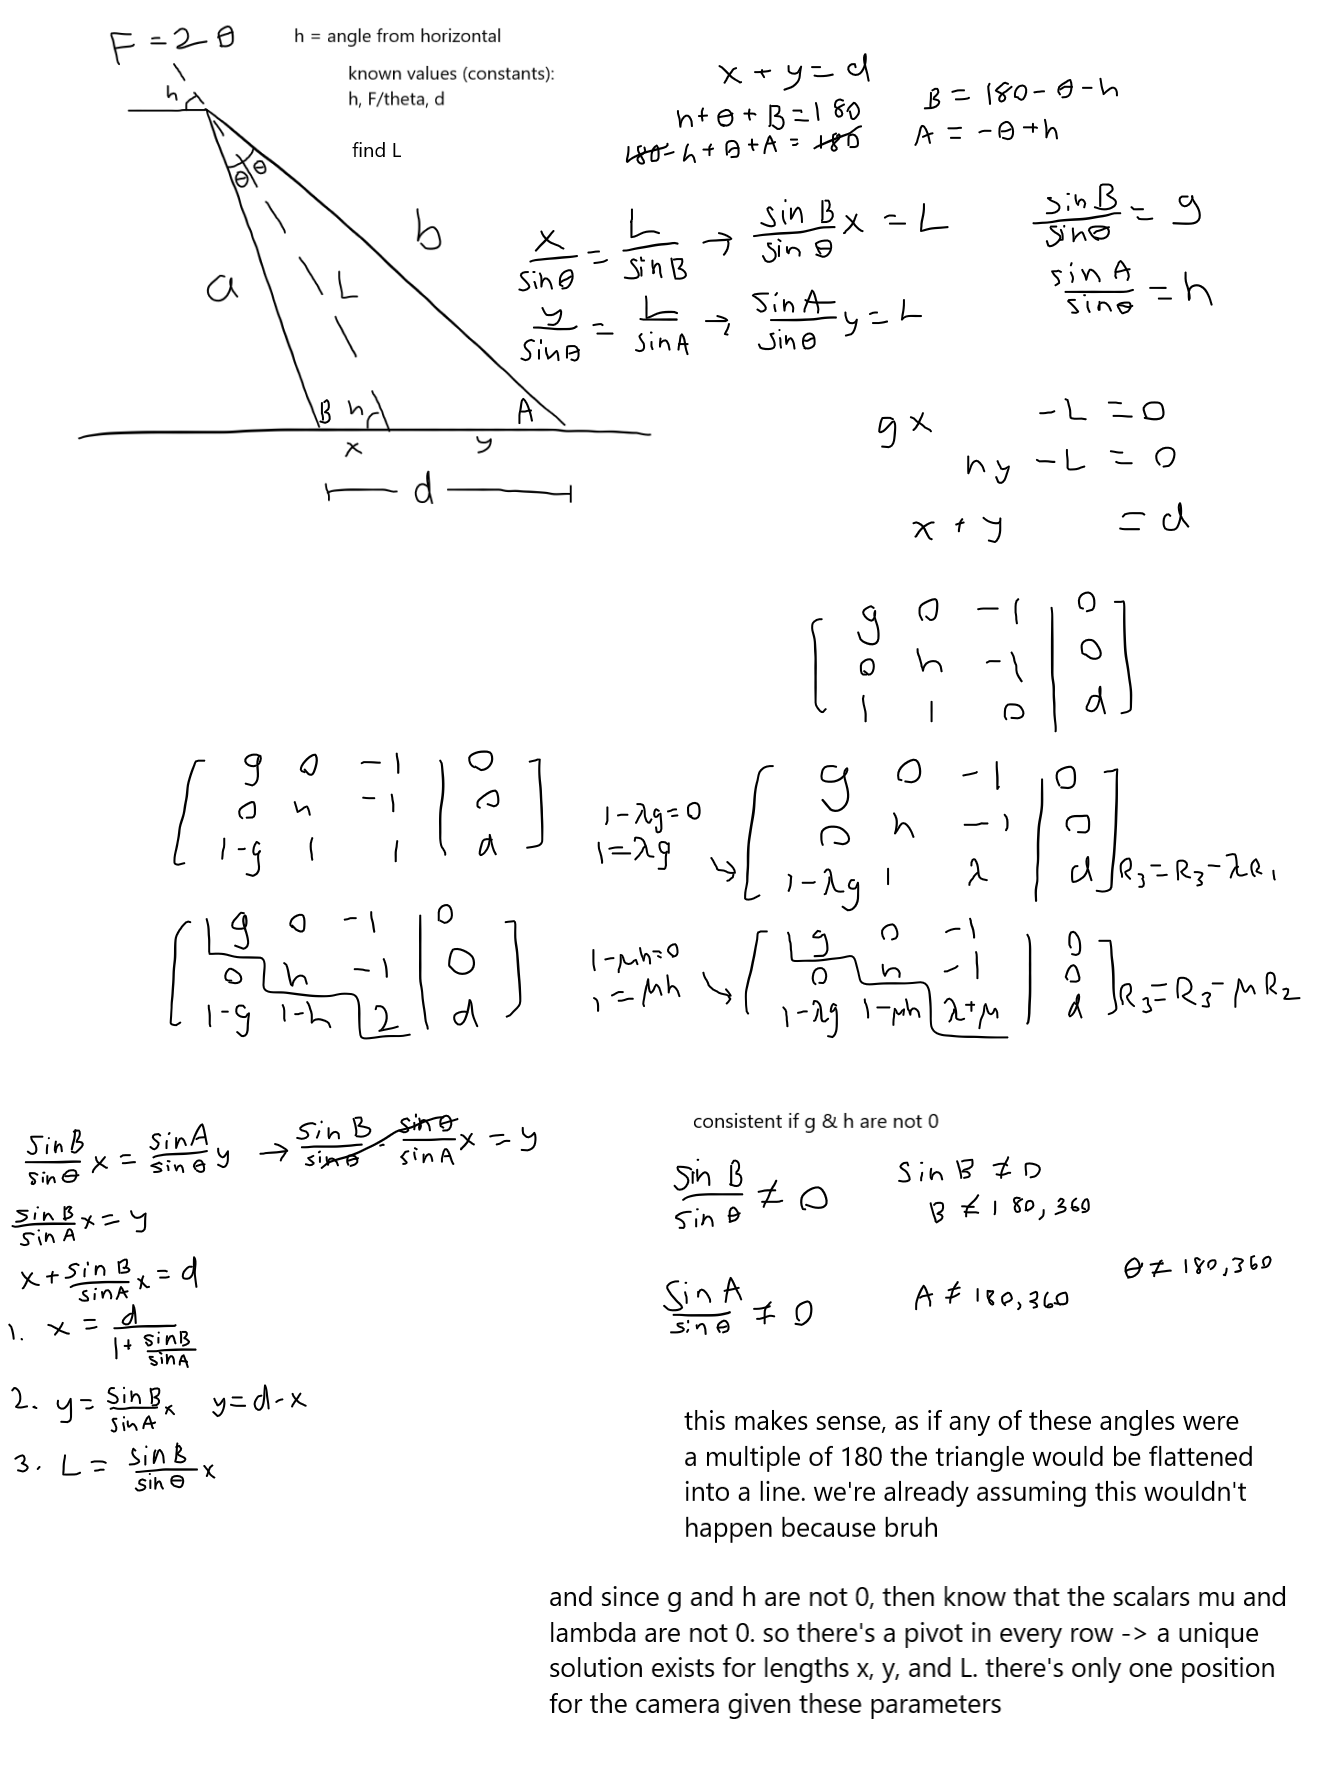 F = 2θ
h = angle from horizontal
known values (constants):
h, F/theta, d
find L
h
θ θ
a
b
L
B h A
x y
d
x + y = d
h + θ + B = 180
180 - h + θ + A = 180
B = 180 - θ - h
A = -θ + h
x/sinθ = L/sinB → sinB/sinθ x = L
y/sinθ = L/sinA → sinA/sinθ y = L
sinB/sinθ = g
sinA/sinθ = h
gx - L = 0
hy - L = 0
x + y = d
[ g 0 -1 | 0 ]
[ 0 h -1 | 0 ]
[ 1 1 0 | d ]
[ g 0 -1 | 0 ]
[ 0 h -1 | 0 ]
[ 1-g 1 1 | d ]
1-λg=0
1=λg
[ g 0 -1 | 0 ]
[ 0 h -1 | 0 ]
[ 1-λg 1 λ | d ] R3=R3-λR1
[ g 0 -1 | 0 ]
[ 0 h -1 | 0 ]
[ 1-g 1-h 2 | d ]
1-μh=0
1=μh
[ g 0 -1 | 0 ]
[ 0 h -1 | 0 ]
[ 1-λg 1-μh λ+μ | d ] R3=R3-μR2
sinB/sinθ x = sinA/sinθ y → sinB/sinθ · sinθ/sinA x = y
sinB/sinA x = y
x + sinB/sinA x = d
1. x = d/(1+ sinB/sinA)
2. y = sinB/sinA x y = d-x
3. L = sinB/sinθ x
consistent if g & h are not 0
sin B/sin θ ≠ 0
sin B ≠ 0
B ≠ 180, 360
sin A/sin θ ≠ 0
A ≠ 180, 360
θ ≠ 180, 360
this makes sense, as if any of these angles were
a multiple of 180 the triangle would be flattened
into a line. we're already assuming this wouldn't
happen because bruh
and since g and h are not 0, then know that the scalars mu and
lambda are not 0. so there's a pivot in every row -> a unique
solution exists for lengths x, y, and L. there's only one position
for the camera given these parameters